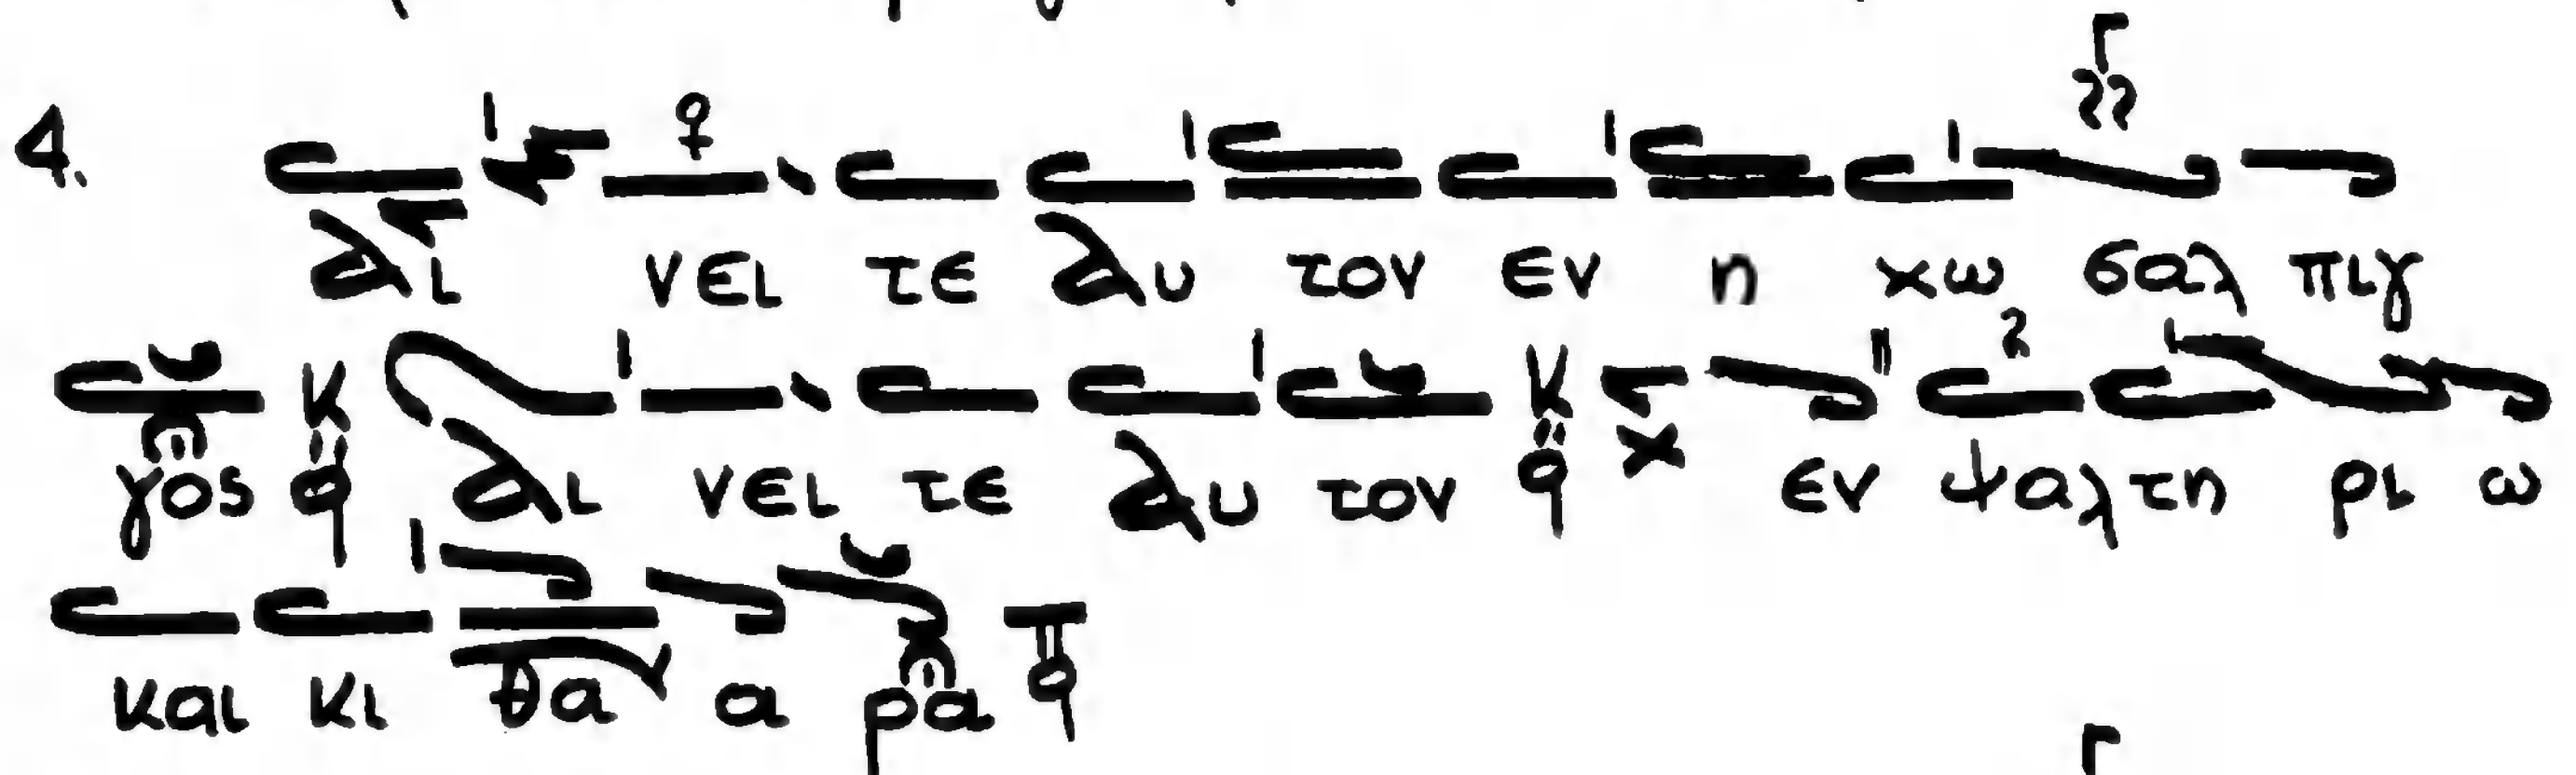 4. αι νει τε αυ τον εν η χω σαλ πιγ
γος αι νει τε αυ τον εν ψαλ τη ρι ω
και κι θα α ρα